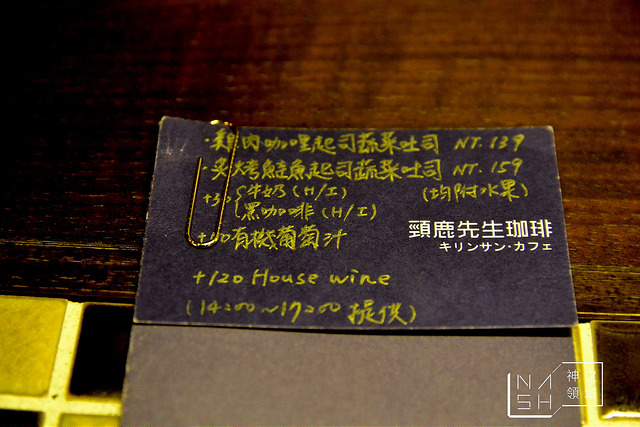 ·雞肉咖哩起司蔬菜吐司 NT.139
·炙烤鮭魚起司蔬菜吐司 NT.159
+30{牛奶(H/I) (均附水果)
黑咖啡(H/I)
有機葡萄汁
頸鹿先生珈琲
キリンサン・カフェ
+120 House wine
(14:00~17:00 提供)
NASH 神之領域